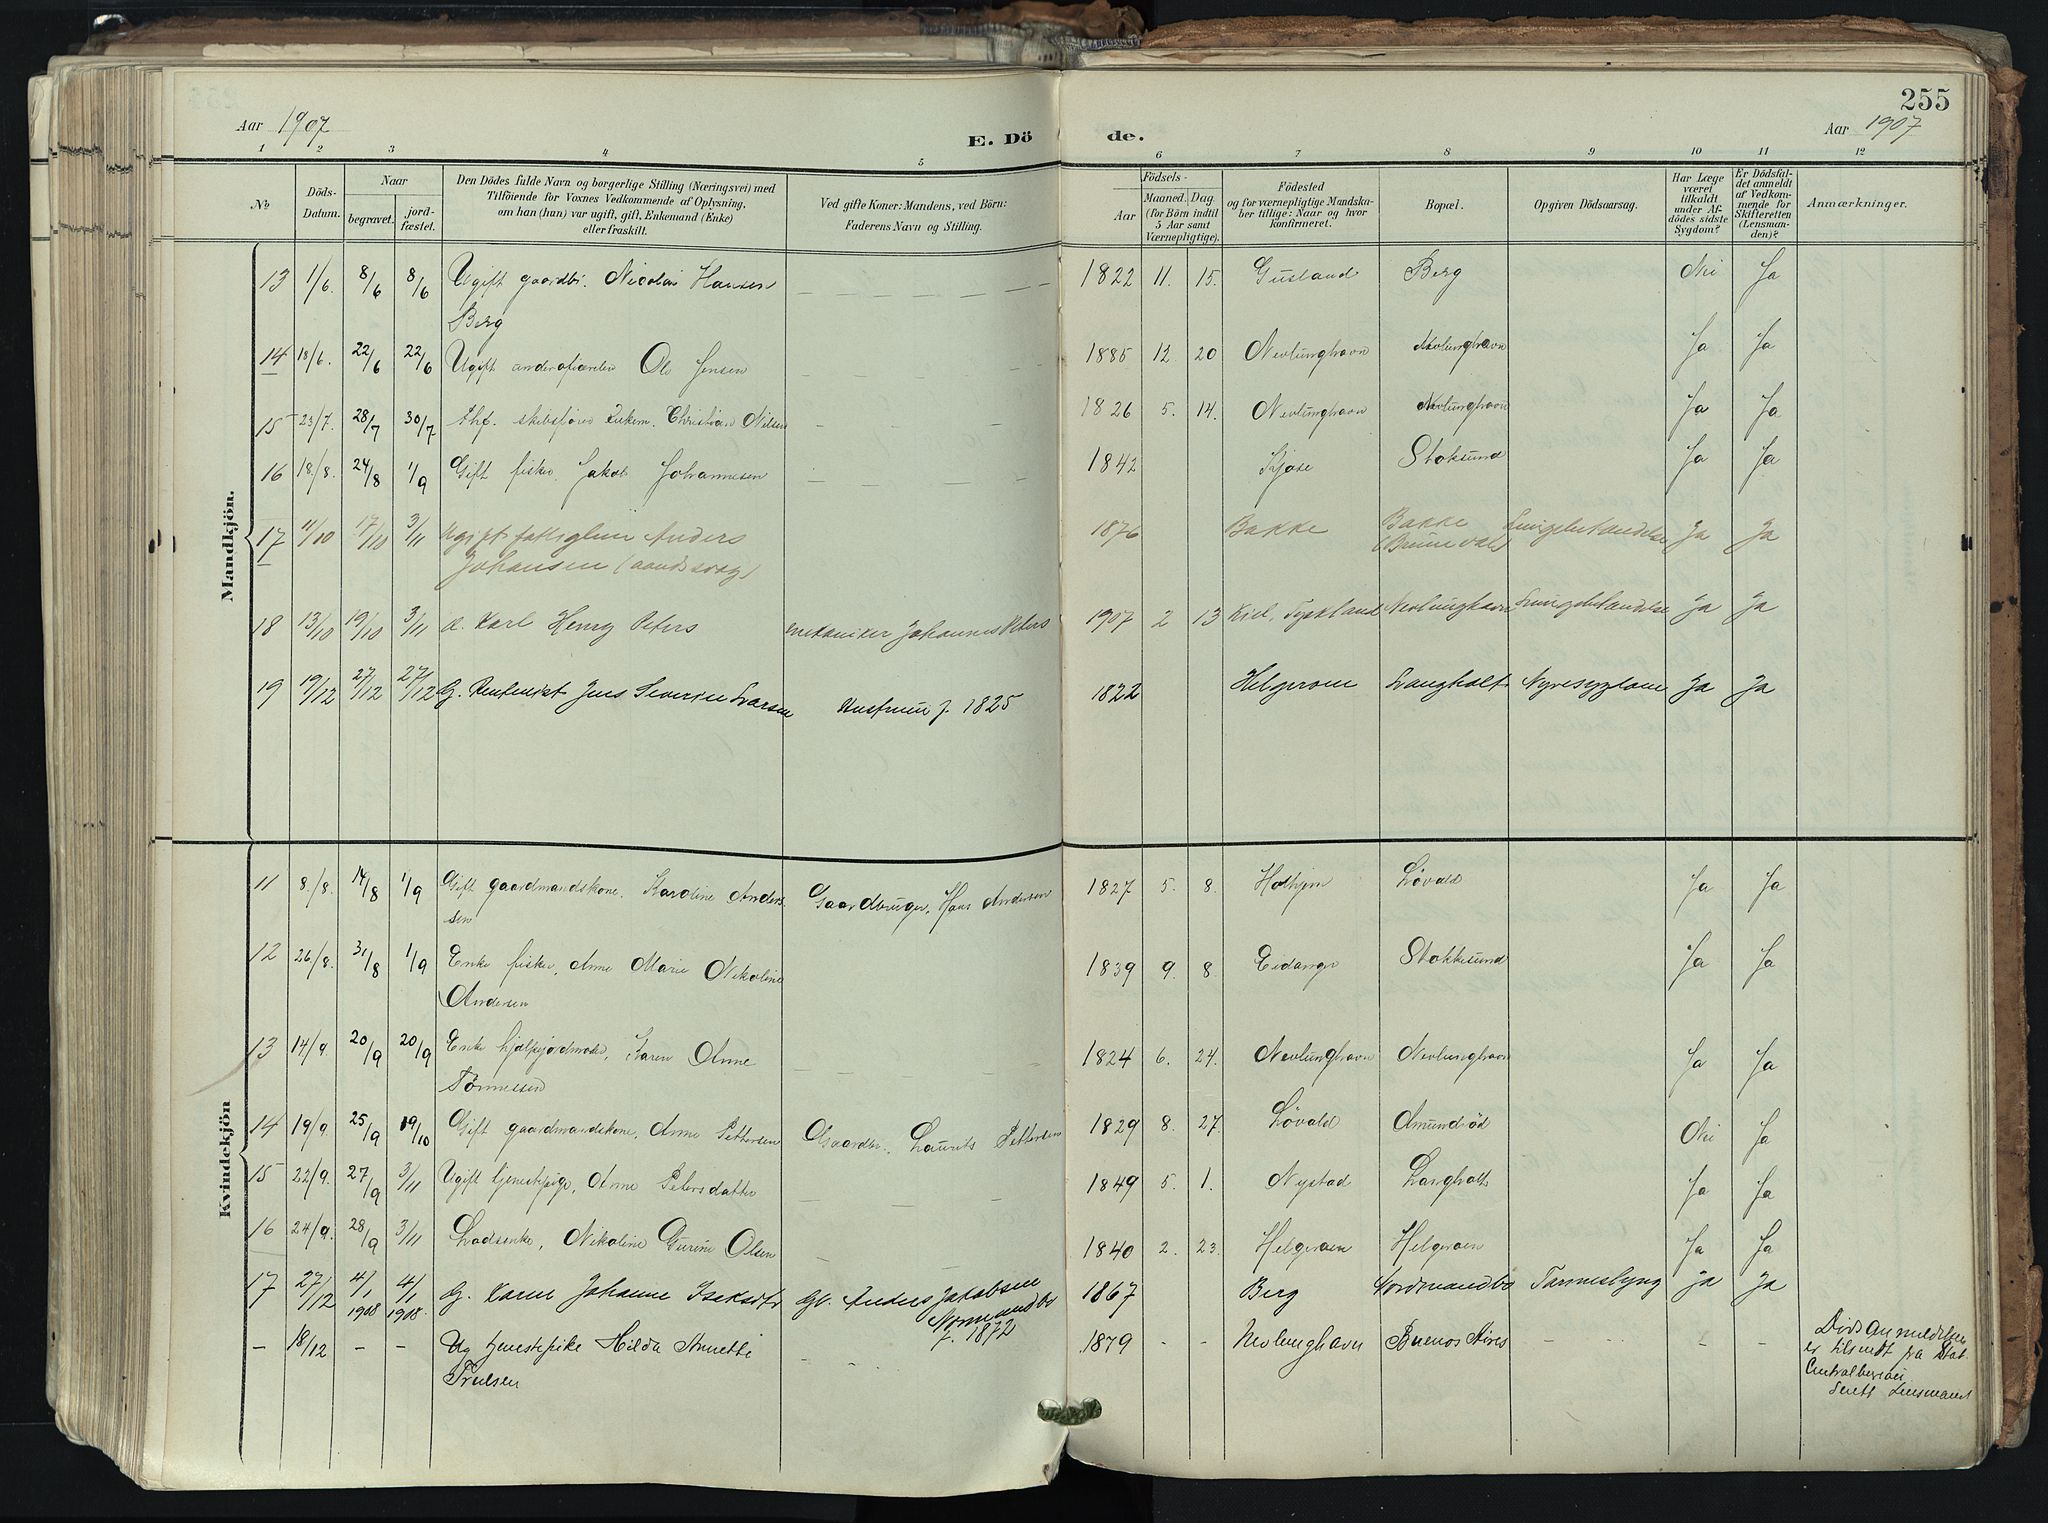 255
Aar 1907
E. Dö
de.
Aar 1907
1 2 3 4 5 6 7 8 9 10 11 12
№
Döds-Datum.
Naar
begravet.
jord-fæstet.
Den Dödes fulde Navn og borgerlige Stilling (Næringsvei) med
Tilföiende for Voxnes Vedkommende af Oplysning,
om han (hun) var ugift, gift, Enkemand (Enke)
eller fraskilt.
Ved gifte Koner: Mandens, ved Börn:
Faderens Navn og Stilling.
Födsels-
Aar
Maaned. Dag.
(for Börn indtil
5 Aar samt
Værnepligtige).
Födested
og for værnepligtige Mandska-
ber tillige: Naar og hvor
konfirmeret.
Bopæl.
Opgiven Dödsaarsag.
Har Læge
været
tilkaldt
under Af-
dödes sidste
Sygdom?
Er Dödsfal-
det anmeldt
af Vedkom-
mende for
Skifteretten
(Lensman-
den)?
Anmærkninger.
Mandkjön.
13 1/6. 8/6 8/6 Ugift gaardbr. Nicolai Hansen — — — — 1822 11. 15. Gusland Berg Nei Ja
Berg
14 18/6. 22/6 22/6 Ugift Ole Jensen — — — — 1885 12. 20 Nevlunghavn Nevlunghavn Ja Ja
15 23/7. 28/7 30/7 skibsfører Enkem. Christian Nilsen — — — — 1826 5. 14. Nevlunghavn Nevlunghavn Ja Ja
16 18/8. 24/8 1/9 Gift fisker Jakob Johannesen — — — — 1842 Kjose Stoksund Ja Ja
17 11/10 17/10 3/11 Ugift fattiglem Anders 1876 Bakke Bakke Lungebetændelse Ja Ja
Johansen (aandssvag) (Brunevald)
18 13/10 19/10 3/11 d. Karl Henry Peters mekaniker Johannes Peters 1907 2 13 Kiel, Tyskland Nevlunghavn Lungebetændelse Ja Ja
19 19/12 27/12 27/12 G. Rentenist Jens Severin Larsen Hustruen f. 1825 1822 Helgeroen Langholt Nyresygdom Ja Ja
Kvindekjön
11 8./8. 14/8 1/9 Gift gaardmandskone. Karoline Anders- Gaardbruger, Hans Andersen 1827 5. 8. Holhjem Løvald Ja Ja
sen
12 26/8. 31/8 1/9 Enke fisker, Anne Marie Nikoline 1839 9. 8. Eidanger Stokksund Ja Ja
Andersen
13 14/9. 20/9 20/9 Enke hjælpejordmoder, Karen Anne — — — — 1824 6. 24. Nevlunghavn Nevlunghavn Ja Ja
Tønnessen
14 19/9. 25/9 19/10 Gift gaardmandskone, Anne Pettersen Gaardbr., Laurits Pettersen 1829 8. 27. Løvald Amundrød Nei Ja
15 22/9. 27/9 3/11 Ugift tjenestepige, Anne Petersdatter — — — 1849 5. 1. Nystad Langholt Ja Ja
16 24/9. 28/9 3/11 Lodsenke, Nikoline Gurine Olsen — — 1840 2. 23. Helgeroen Helgeroen Ja Ja
17 27/12 4/1 1908 4/1 1908. G. Karen Johanne Isaksdtr Gbr. Anders Jakobsen 1867 Berg Nordmandbo Tarmeslyng Ja Ja
f. 1872
— 18/12 — — Ug tjenestepike Hilda Annette — — 1879 — — Nevlunghavn Buenos Aires — — — Dødsanmeldelsen
Trulsen er tilsendt fra Stat.
Centralbyrå
Sendt Lensmand